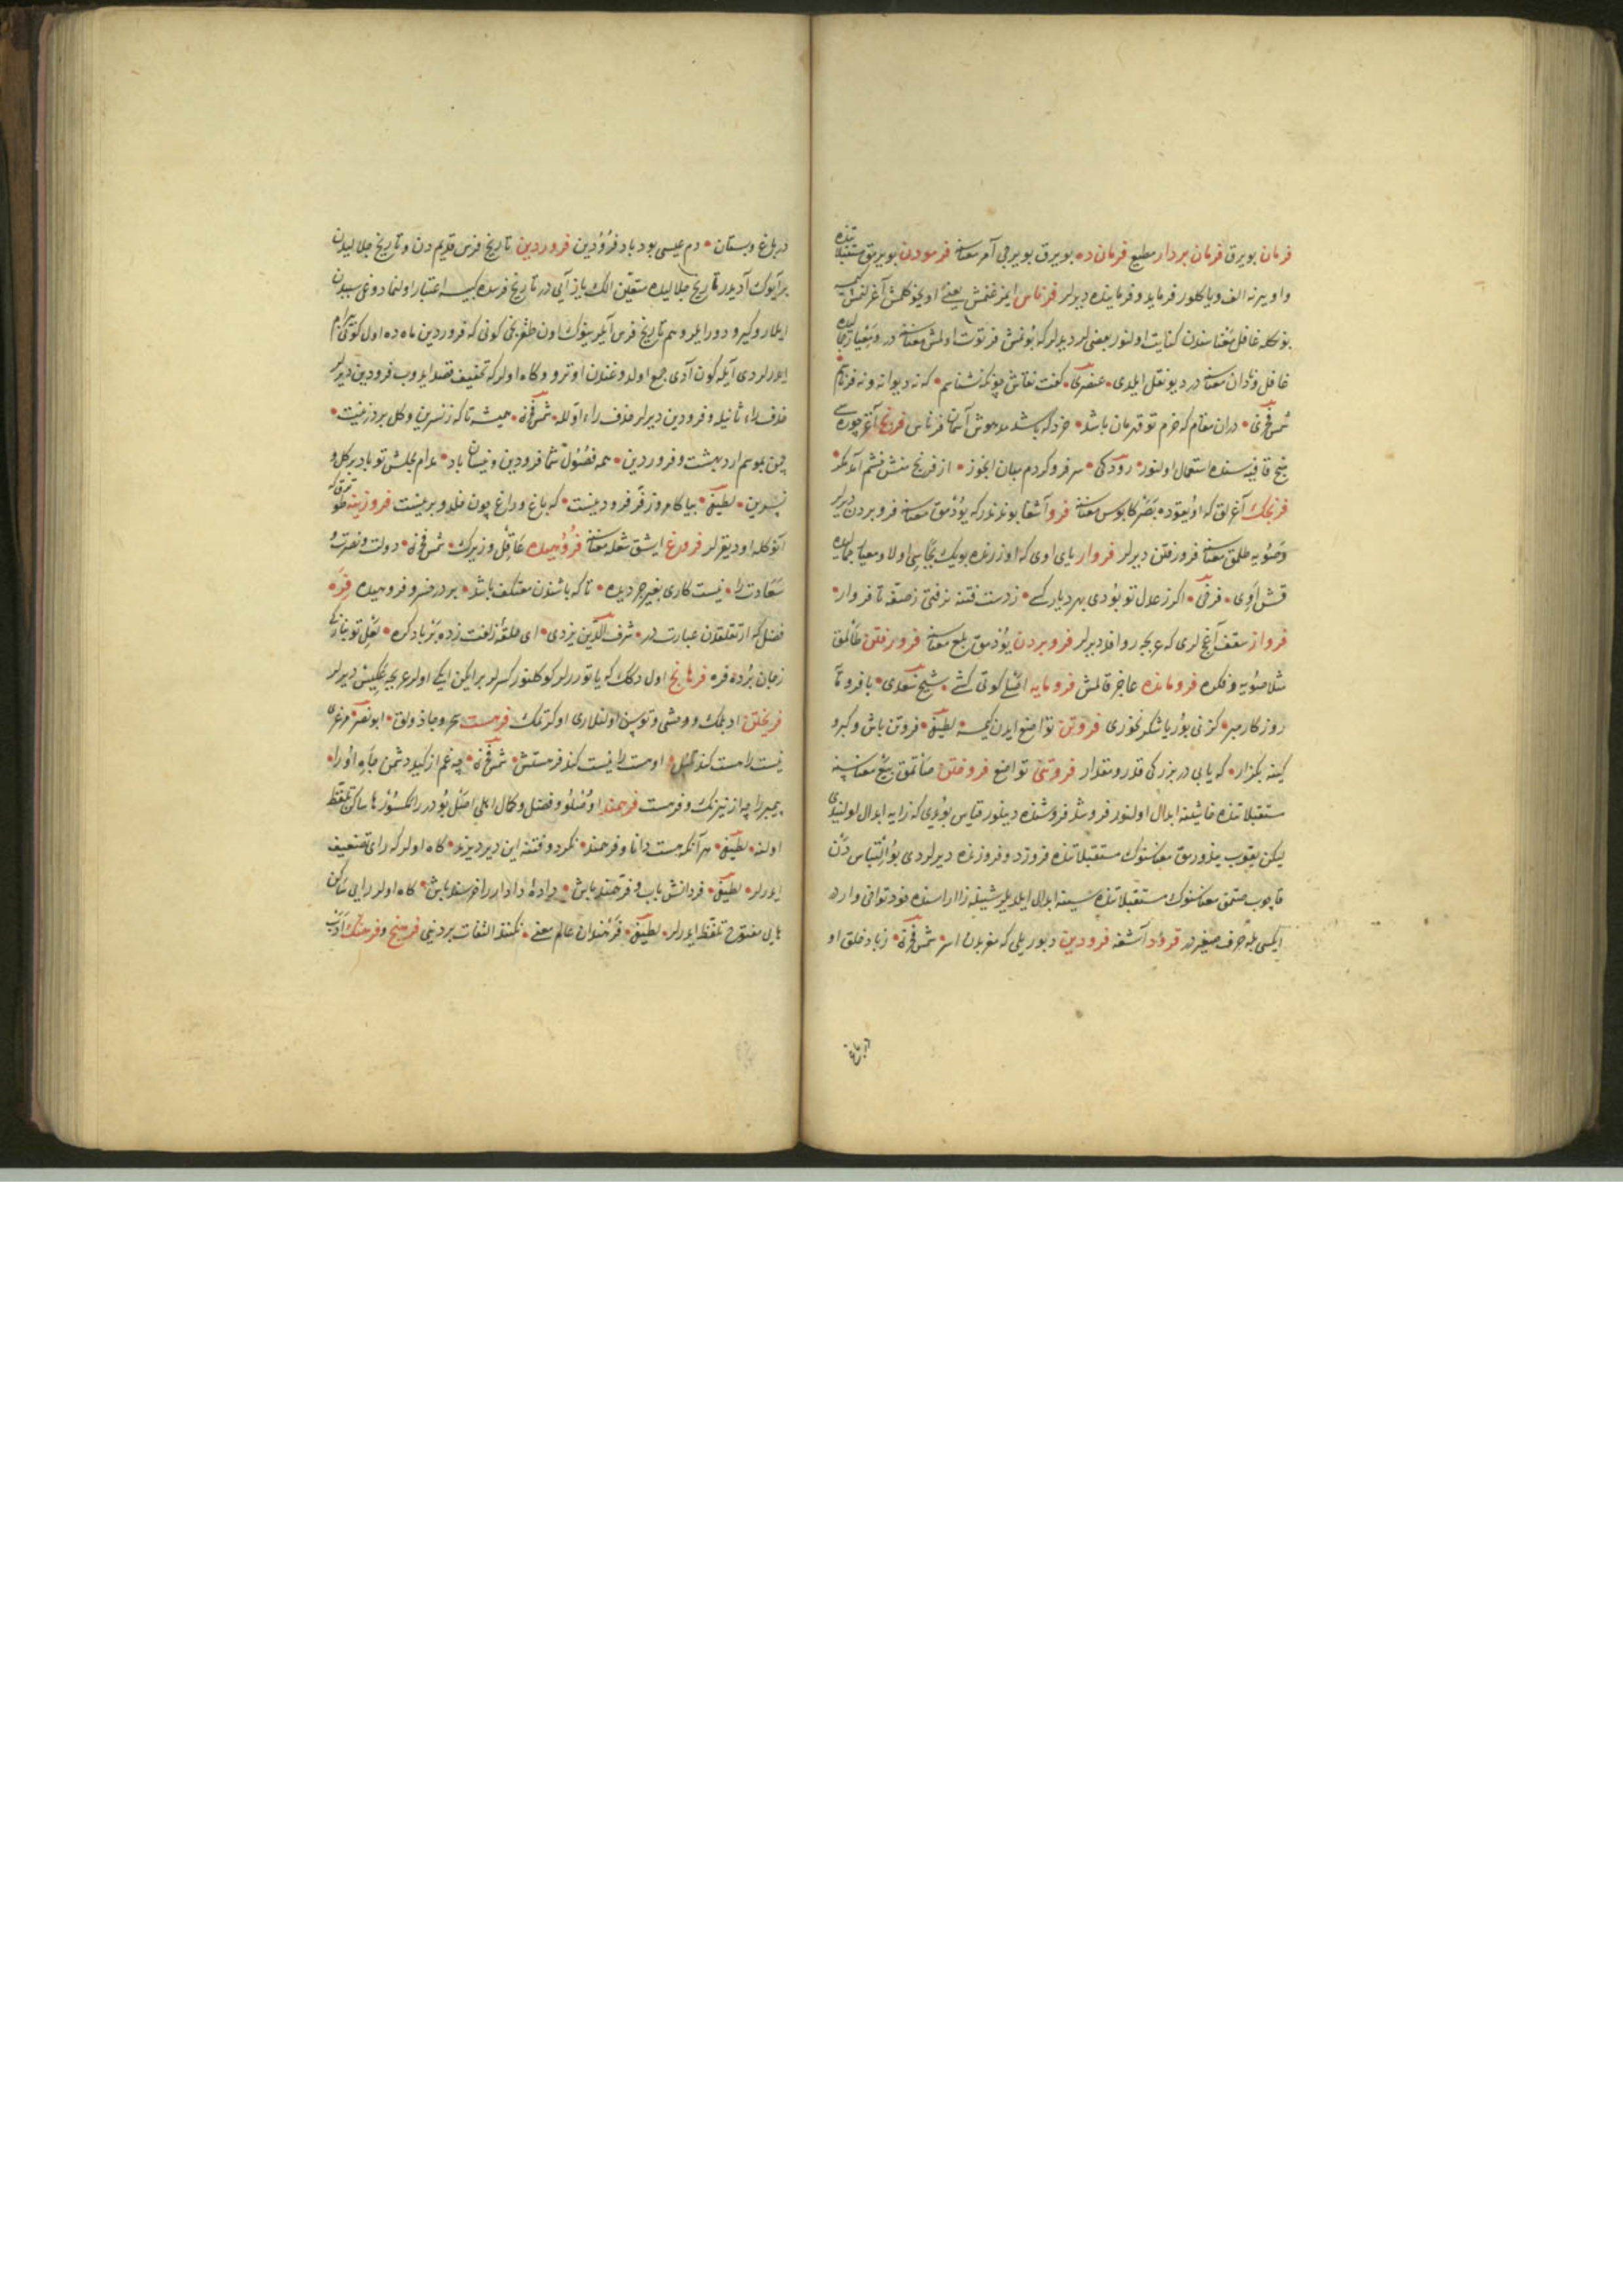 فرمان بویرق فرمان بردار مطیع فرمان ده بویرق بویرجی آمر معناسنه فرمودن بویرمق مستقبلاتنده
واو یرنه الف ویا کلور فرماید وفرماینده دیرلر فرناس ایمزغنمش یعنی اویخو کلمش آغرلنمش
بو کله غافل معناسندن کنایت اولنور بعضی لر دیدیلر که بونمش فرتوت اولمش معناسنه در ومعیار جمالیده
غافل ونادان معناسنه در دیو نقل ایلدی عنصری کفت نقاش چونکه نشناسم که نه دیوانه ونه فرناسم
شمس فخری دران مقام که خرم تو قهرمان باشد خرد که باشد مدهوش آسمان فرناس فرنج آغز چوره سی
پنج قافیه سنده استعمال اولنور رودکی سر فرو کردم میان آبخور از فرنج منش خشم آمد مکر
فرنجک آغرلق که اویقوده بصر کابوس معناسنه فرو آشغا بوندندر که یوتمق معناسنه فرو بردن دیرلر
وصویه طلمق معناسنه فرو رفتن دیرلر فروار یای اوی که اوزرنده بویک بجاسی اولا ومعیار جمالیده
قش اوی فرخی اکر ز عدل تو بودی بهر دیار کسی ز دست فتنه نرفتی ز صفه تا فروار
فرواز سقف آغج لری که عربجه روافد دیرلر فرو بردن یوتمق بلع معناسنه فرو رفتن طالمق
مثلا صویه وفکره فرومانده عاجز قالمش فرومایه اصلی کوتی کشی شیخ سعدی با فرومایه
روزکار مبر کز نی بوریا شکر نخوری فروتن تواضع ایدن کیمسه لطیفی فروتن باش وکبر و
کینه بکذار که یابی در بزرکی قدر ومقدار فروتنی تواضع فروختن صاتمق بیع معناسنه
مستقبلاتنده خا شینه ابدال اولنور فروشد فروشنده دینلور قیاس بو ایدی که زایه ابدال اولنیدی
لیکن یقوب یندورمق معناسنک مستقبلاتنده فروزد وفروزنده دیرلردی بو التباس دن
قاچوب صتمق معناسنک مستقبلاتنده شینه ابدال ایلدیلر شینله زا اراسنده خود توافق وارد
ایکسی بله حرف صغیر در فرود آشغه فرودین دبور یلی که مغربدن اسر شمس فخری زباد خلق او
در باغ
در باغ وبستان دم عیسی بود باد فرودین فروردین تاریخ فرس قدیم دن وتاریخ جلالیدن
بر آیوک آدیدر تاریخ جلالیده متعین الک یاز آیی در تاریخ فرسده کبیسه اعتبار اولنمادوغی سببدن
ایلرو کیرو دورایلر وهم تاریخ فرس آیلرینوک اون طقزنجی کونی که فروردین ماه ده اول کونی بیرام
ایدرلردی آیله کون آدی جمع اولدوغندن اوترو وکاه اولر که تخفیف قصد ایدوب فرودین دیرلر
حذف راء ثانیله وفرودین دیرلر حذف راء اوله شمس فخری همیشه تا که ز نسرین وکل برد زینت
چمن بموسم اردیبهشت وفروردین همه فصول شما فرودین ونیسان باد مدام مجلس تو باد پر کل و
نسرین لطیفی بیا کامروز فر فرودینست که باغ وراغ چون خلد برینست فروزینه طو تروق که
آنوکله اود یقرلر فروغ ایشق شعله معناسنه فروهیده عاقل وزیرک شمس فخری دولت ونصرت و
سعادت را نیست کاری بغیر جر دیده تا که باشدن معتکف باشد بر در خسرو فروهیده فره
فضل که ارتقلقدن عبارت در شرف الدین یزدی ای حلقه زلفت زده بر باد کره لعل تو نیاز
زبان برده فره فرهانج اول دکلک که یاتوررلر کوکلنور کسرلر بر ایکن ایکی اولر عربجه عکیس دیرلر
فرهختن ادبلمک ووحشی وتوسن اولنلری اوکرتمک فرهست سحر وجاذولق ابو نصر مرغزی
نیست را هست کند تنبل او هست را نیست کند فرهستش شمس فخری چه غم از کید دشمن جاه او را
پیمبر را چه از نیرنک وفرهست فرهمند اوصلو وفضل وکمال اهلی اصل بودر را مکسور ها ساکن تلفظ
اولنه لطیفی هر آنکه هست دانا وفرهمند نکردد فتنه این دیر دیرند کاه اولر که رای تضعیف
ایدرلر لطیفی فر دانش یاب وفرهمند باش داده دادار را خرسند باش کاه اولر رایی ساکن
هایی مفتوح تلفظ ایدرلر لطیفی فرهمندان عالم معنی نکنند التفات بر دنیی فرهنج وفرهنک ادب